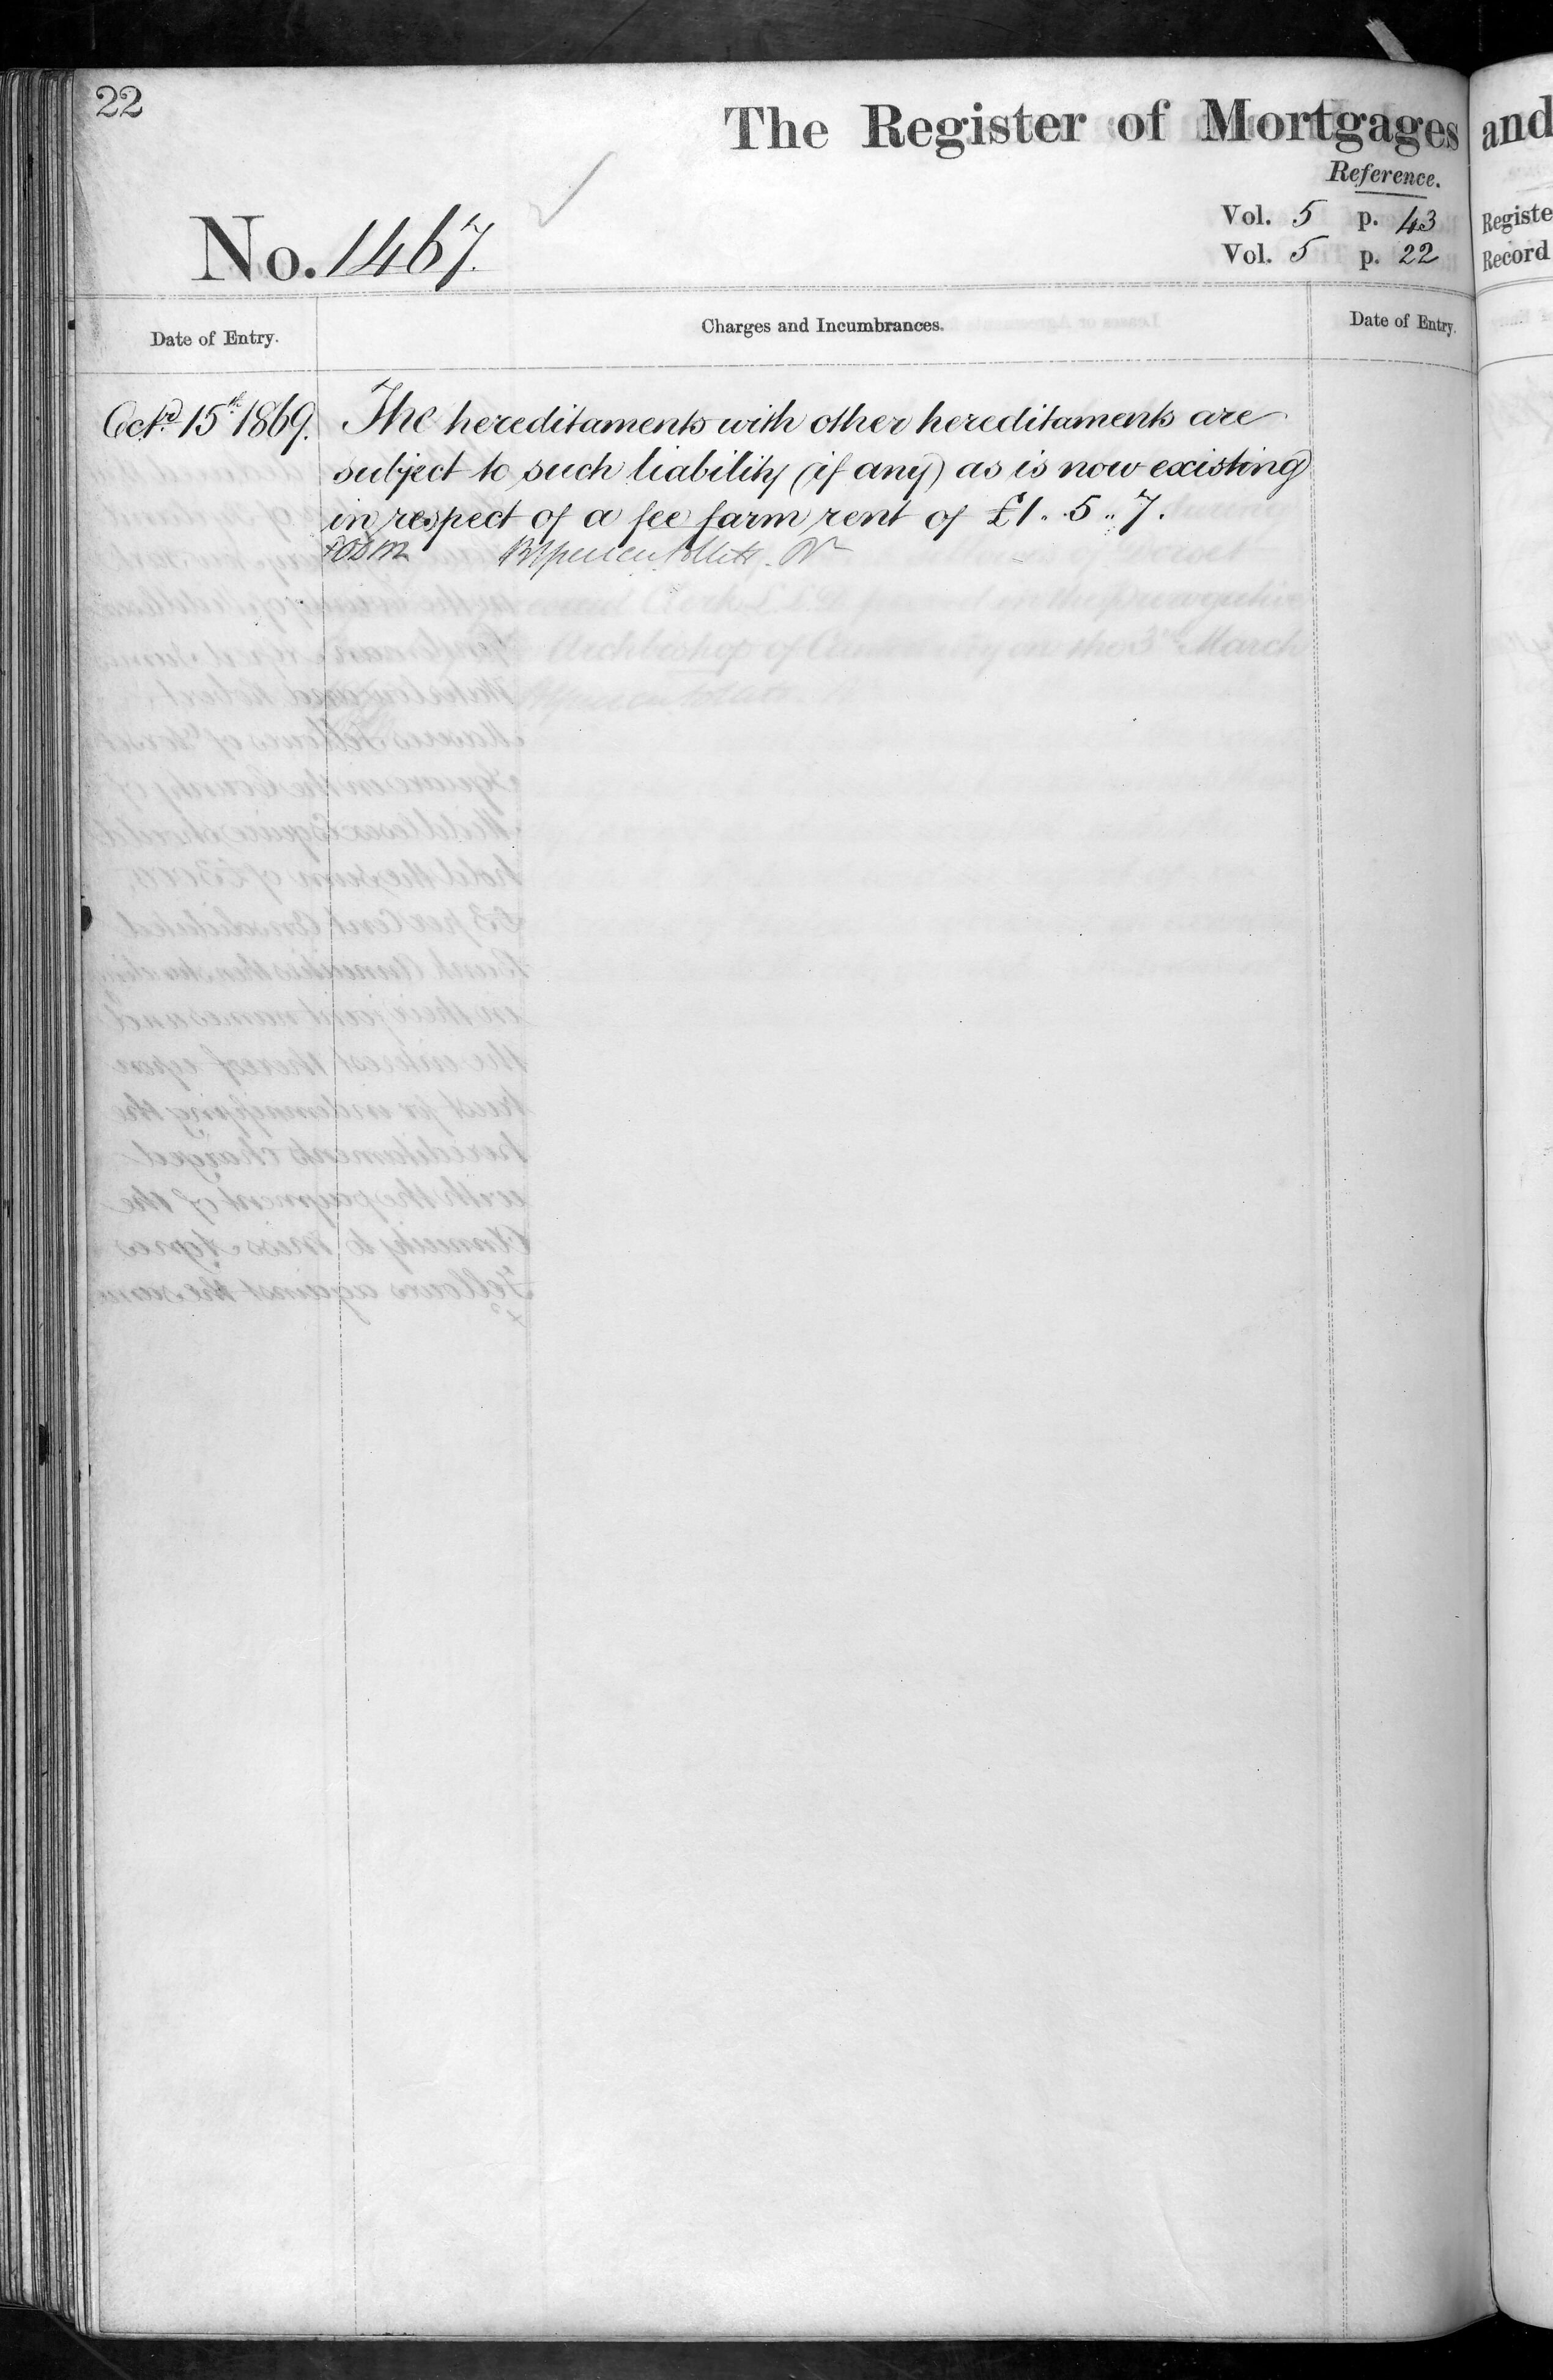 22
The Register of Mortgages and
Reference.
No. 1467.
Vol. 5 p. 43 Registe
Vol. 5 p. 22 Record
Date of Entry. Charges and Incumbrances. Date of Entry.
Octr. 15th 1869. The hereditaments with other hereditaments are
subject to such liability (if any) as is now existing
in respect of a fee farm rent of £1. 5. 7.